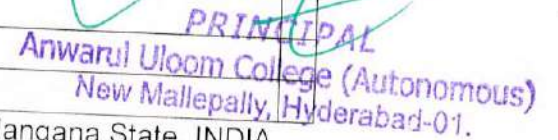 PRINCIPAL
Anwarul Uloom College (Autonomous)
New Mallepally, Hyderabad-01.
angana State, INDIA